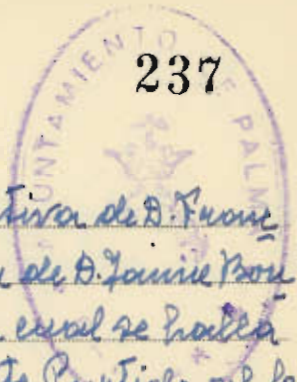 AYUNTAMIENTO DE PALMA
237
tiva de D. Franc
a de D. Jaime Bon
cual se halla